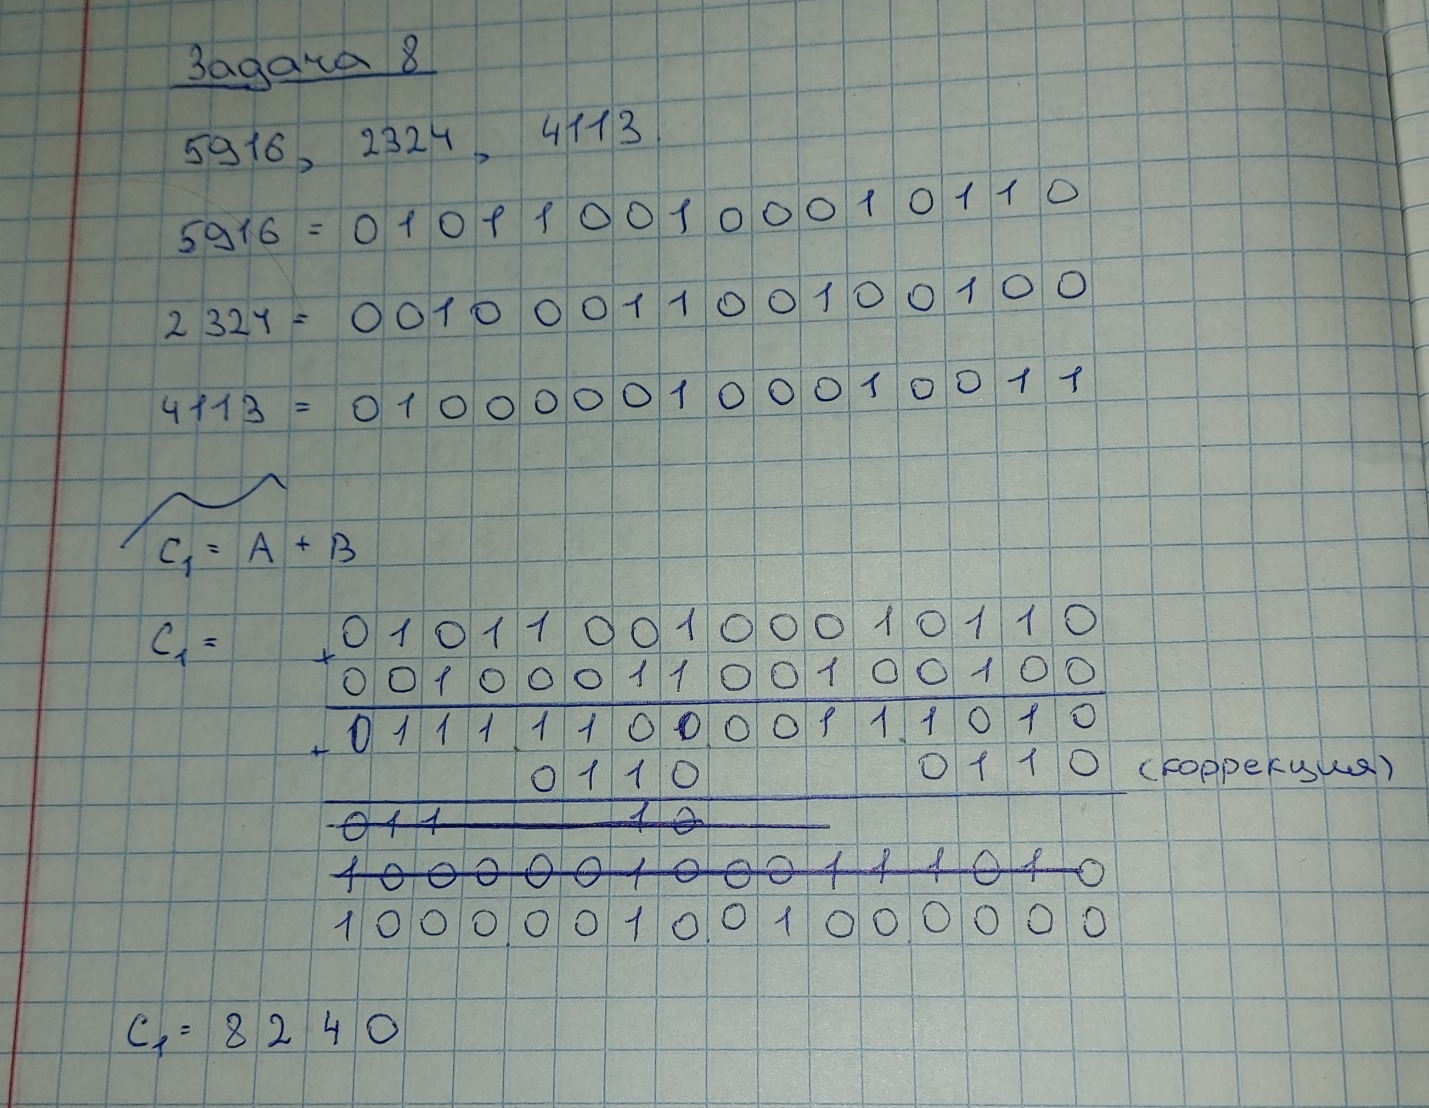 Задача 8
5916, 2324, 4113.
5916 = 0101100100010110
2324 = 0010001100100100
4113 = 0100000100010011
C1 = A + B
C1 = 0101100100010110
+ 0010001100100100
0111.1100.0011.1010
+ 0110 0110 (коррекция)
011 10
1000001000111010
1000.0010.0100.0000
C1 = 8240